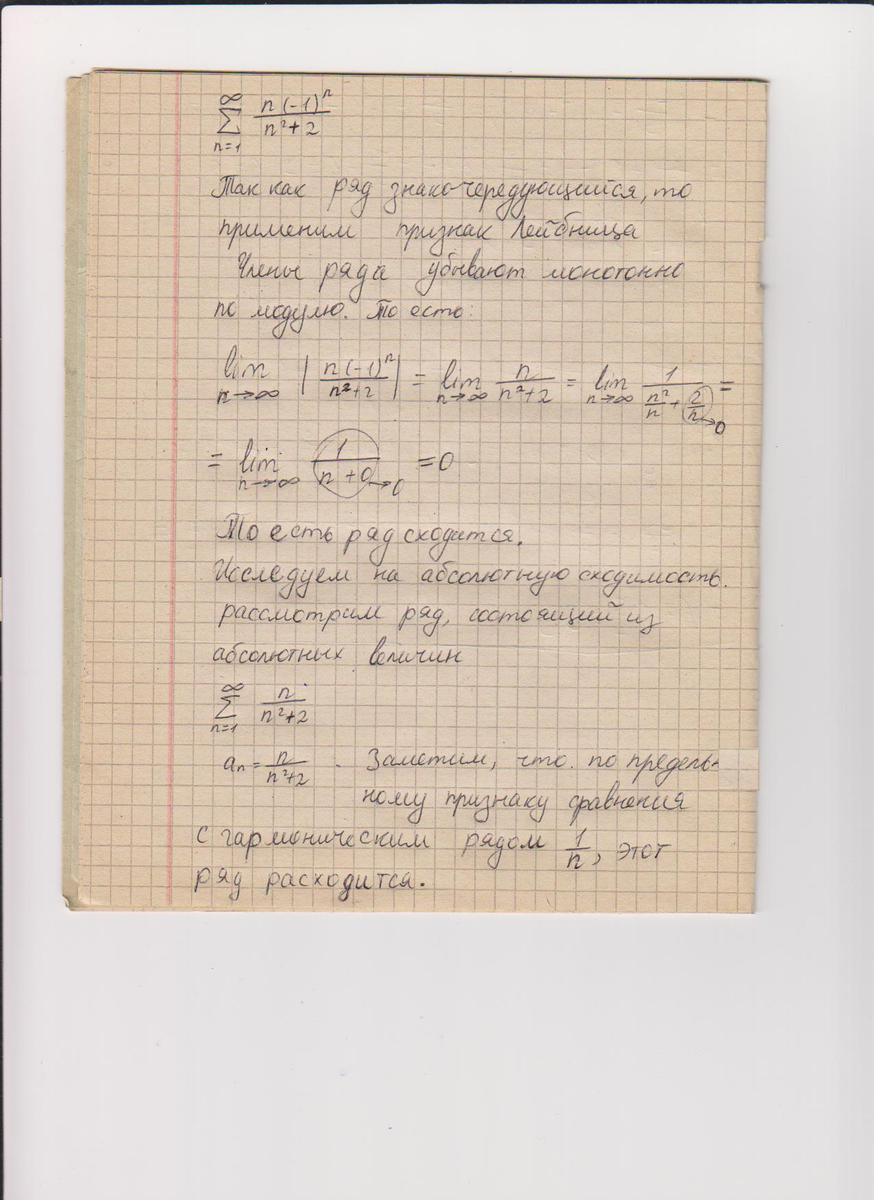 ∞ Σ n=1 n(-1)^n / n²+2
Так как ряд знакочередующийся, то
применим признак Лейбница
Члены ряда убывают монотонно
по модулю. То есть:
lim n→∞ | n(-1)^n / n²+2 | = lim n→∞ n / n²+2 = lim n→∞ 1 / n²/n + 2/n →0 =
= lim n→∞ 1 / n+0 →0 = 0
То есть ряд сходится.
Исследуем на абсолютную сходимость.
рассмотрим ряд, состоящий из
абсолютных величин
∞ Σ n=1 n / n²+2
aₙ = n / n²+2 . Заметим, что по предель-
ному признаку сравнения
с гармоническим рядом 1/n, этот
ряд расходится.